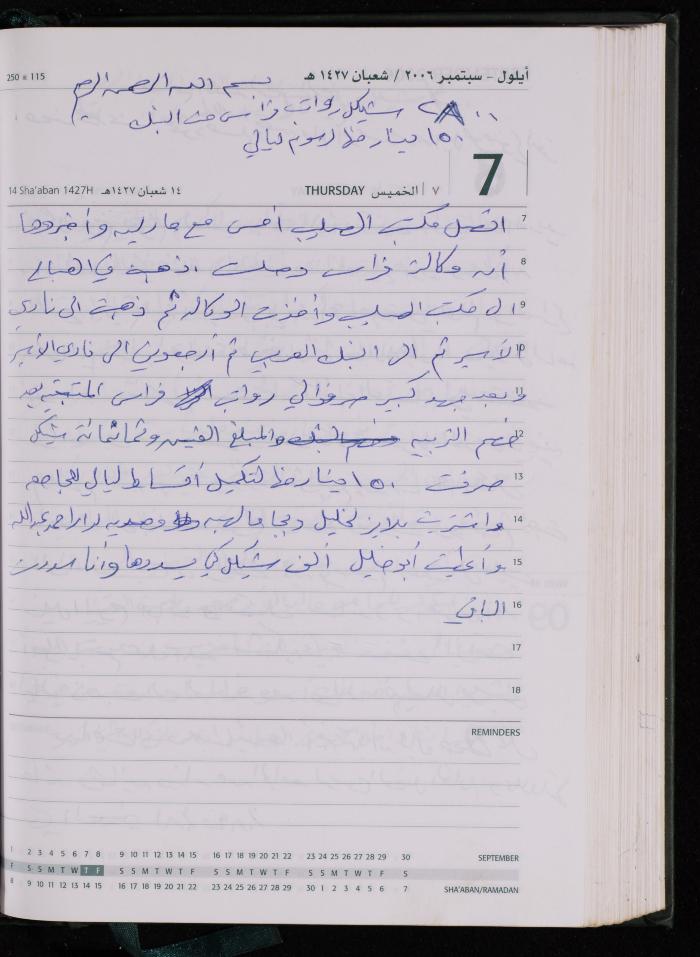 250 ■ 115
أيلول - سبتمبر ٢٠٠٦ / شعبان ١٤٢٧ هـ
بسم الله الرحمن الرحيم
٢٨٠٠ شيكل رواتب فراس من البنك
١٥٠ دينار رسوم ليالي
7
14 Sha'aban 1427H ١٤ شعبان ١٤٢٧هـ THURSDAY الخميس ٧
7 اتصل مكتب الصليب أمس مع وأخبروها
8 أن وكالة فراس وصلت ذهبت في الصباح
9 الى مكتب الصليب وأخذت الوكاله ثم ذهبت الى نادي
10 الأسير ثم الى البنك العربي ثم أرجعوني الى نادي الأسير
11 وبعد جهد كبير صرفوا لي رواتب فراس المتبقيه بعد
12 خصم التربيه والمبلغ الفين وثمانمائة شيكل
13 صرفت ١٥٠ دينار لتكميل أقساط ليالي للجامعه
14 واشتريت بلايز لخليل وهديه
15 وأعطيت أبو خليل ألف شيكل كي يسددها وأنا سددت
16 الباقي
17
18
REMINDERS
1 2 3 4 5 6 7 8 9 10 11 12 13 14 15 16 17 18 19 20 21 22 23 24 25 26 27 28 29 30 SEPTEMBER
F S S M T W T F S S M T W T F S S M T W T F S S M T W T F S
8 9 10 11 12 13 14 15 16 17 18 19 20 21 22 23 24 25 26 27 28 29 30 1 2 3 4 5 6 7 SHA'ABAN/RAMADAN